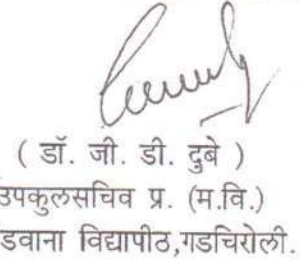 ( डॉ. जी. डी. दुबे )
उपकुलसचिव प्र. (म.वि.)
डवाना विद्यापीठ,गडचिरोली.